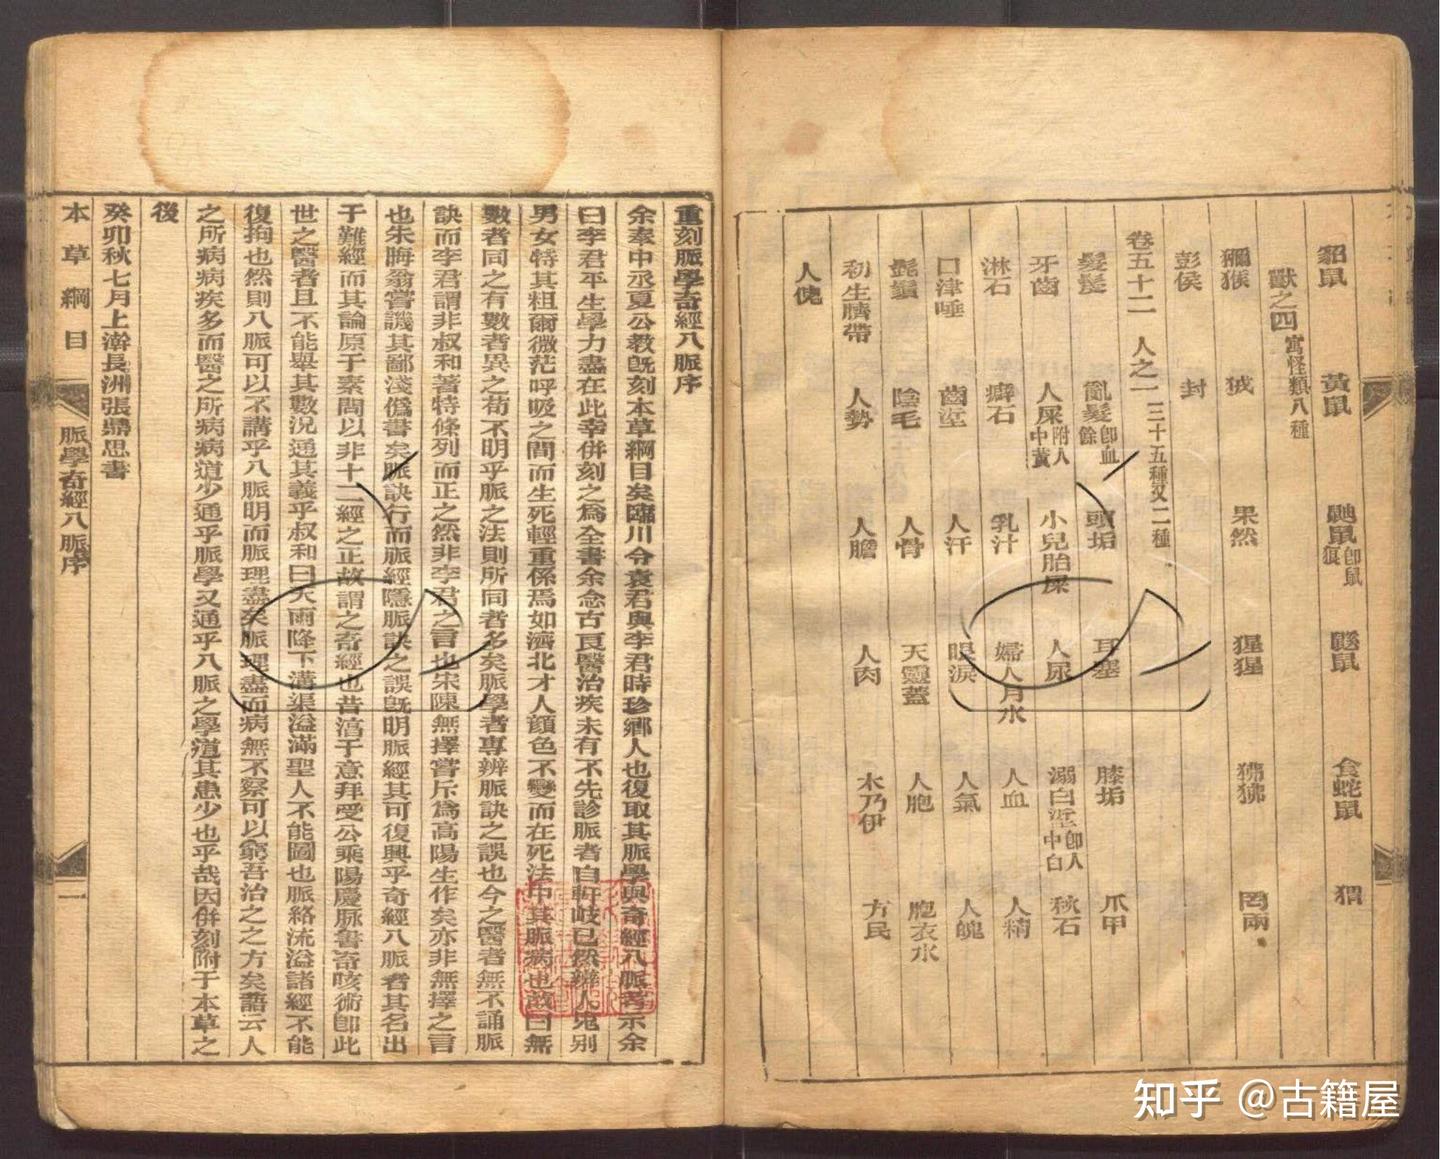 鼦鼠 黃鼠 鼬鼠即鼠狼 鼷鼠 食蛇鼠 猬
獸之四寓怪類八種
獼猴 狨 果然 猩猩 狒狒 罔兩
彭侯 封
卷五十二 人之一三十五種又二種
髮髲 亂髮即血餘 頭垢 耳塞 膝垢 爪甲
牙齒 人屎附人中黃 小兒胎屎 人尿 溺白垽即人中白 秋石
淋石 癖石 乳汁 婦人月水 人血 人精
口津唾 齒垽 人汗 眼淚 人氣 人魄
髭鬚 陰毛 人骨 天靈蓋 人胞 胞衣水
初生臍帶 人勢 人膽 人肉 木乃伊 方民
人傀
重刻脈學奇經八脈序
余奉中丞夏公教旣刻本草綱目矣臨川令袁君與李君時珍鄉人也復取其脈學與奇經八脈考示余
曰李君平生學力盡在此幸併刻之爲全書余念古良醫治疾未有不先診脈者自軒岐已然辨人鬼别
男女特其粗爾微茫呼吸之間而生死輕重係焉如濟北才人顏色不變而在死法中其脈病也故曰無
數者同之有數者異之苟不明乎脈之法則所同者多矣脈學者專辨脈訣之誤也今之醫者無不誦脈
訣而李君謂非叔和著特條列而正之然非李君之言也宋陳無擇嘗斥爲高陽生作矣亦非無擇之言
也朱晦翁嘗譏其鄙淺僞書矣脈訣行而脈經隱脈訣之誤旣明脈經其可復興乎奇經八脈者其名出
于難經而其論原于素問以非十二經之正故謂之奇經也昔淳于意拜受公乘陽慶脈書奇咳術卽此
世之醫者且不能舉其數況通其義乎叔和曰天雨降下溝渠溢滿聖人不能圖也脈絡流溢諸經不能
復拘也然則八脈可以不講乎八脈明而脈理盡矣脈理盡而病無不察可以窮吾治之之方矣語云人
之所病病疾多而醫之所病病道少通乎脈學又通乎八脈之學道其患少也乎哉因併刻附于本草之
後
癸卯秋七月上澣長洲張鼎思書
本草綱目 脈學奇經八脈序 一
知乎 @古籍屋